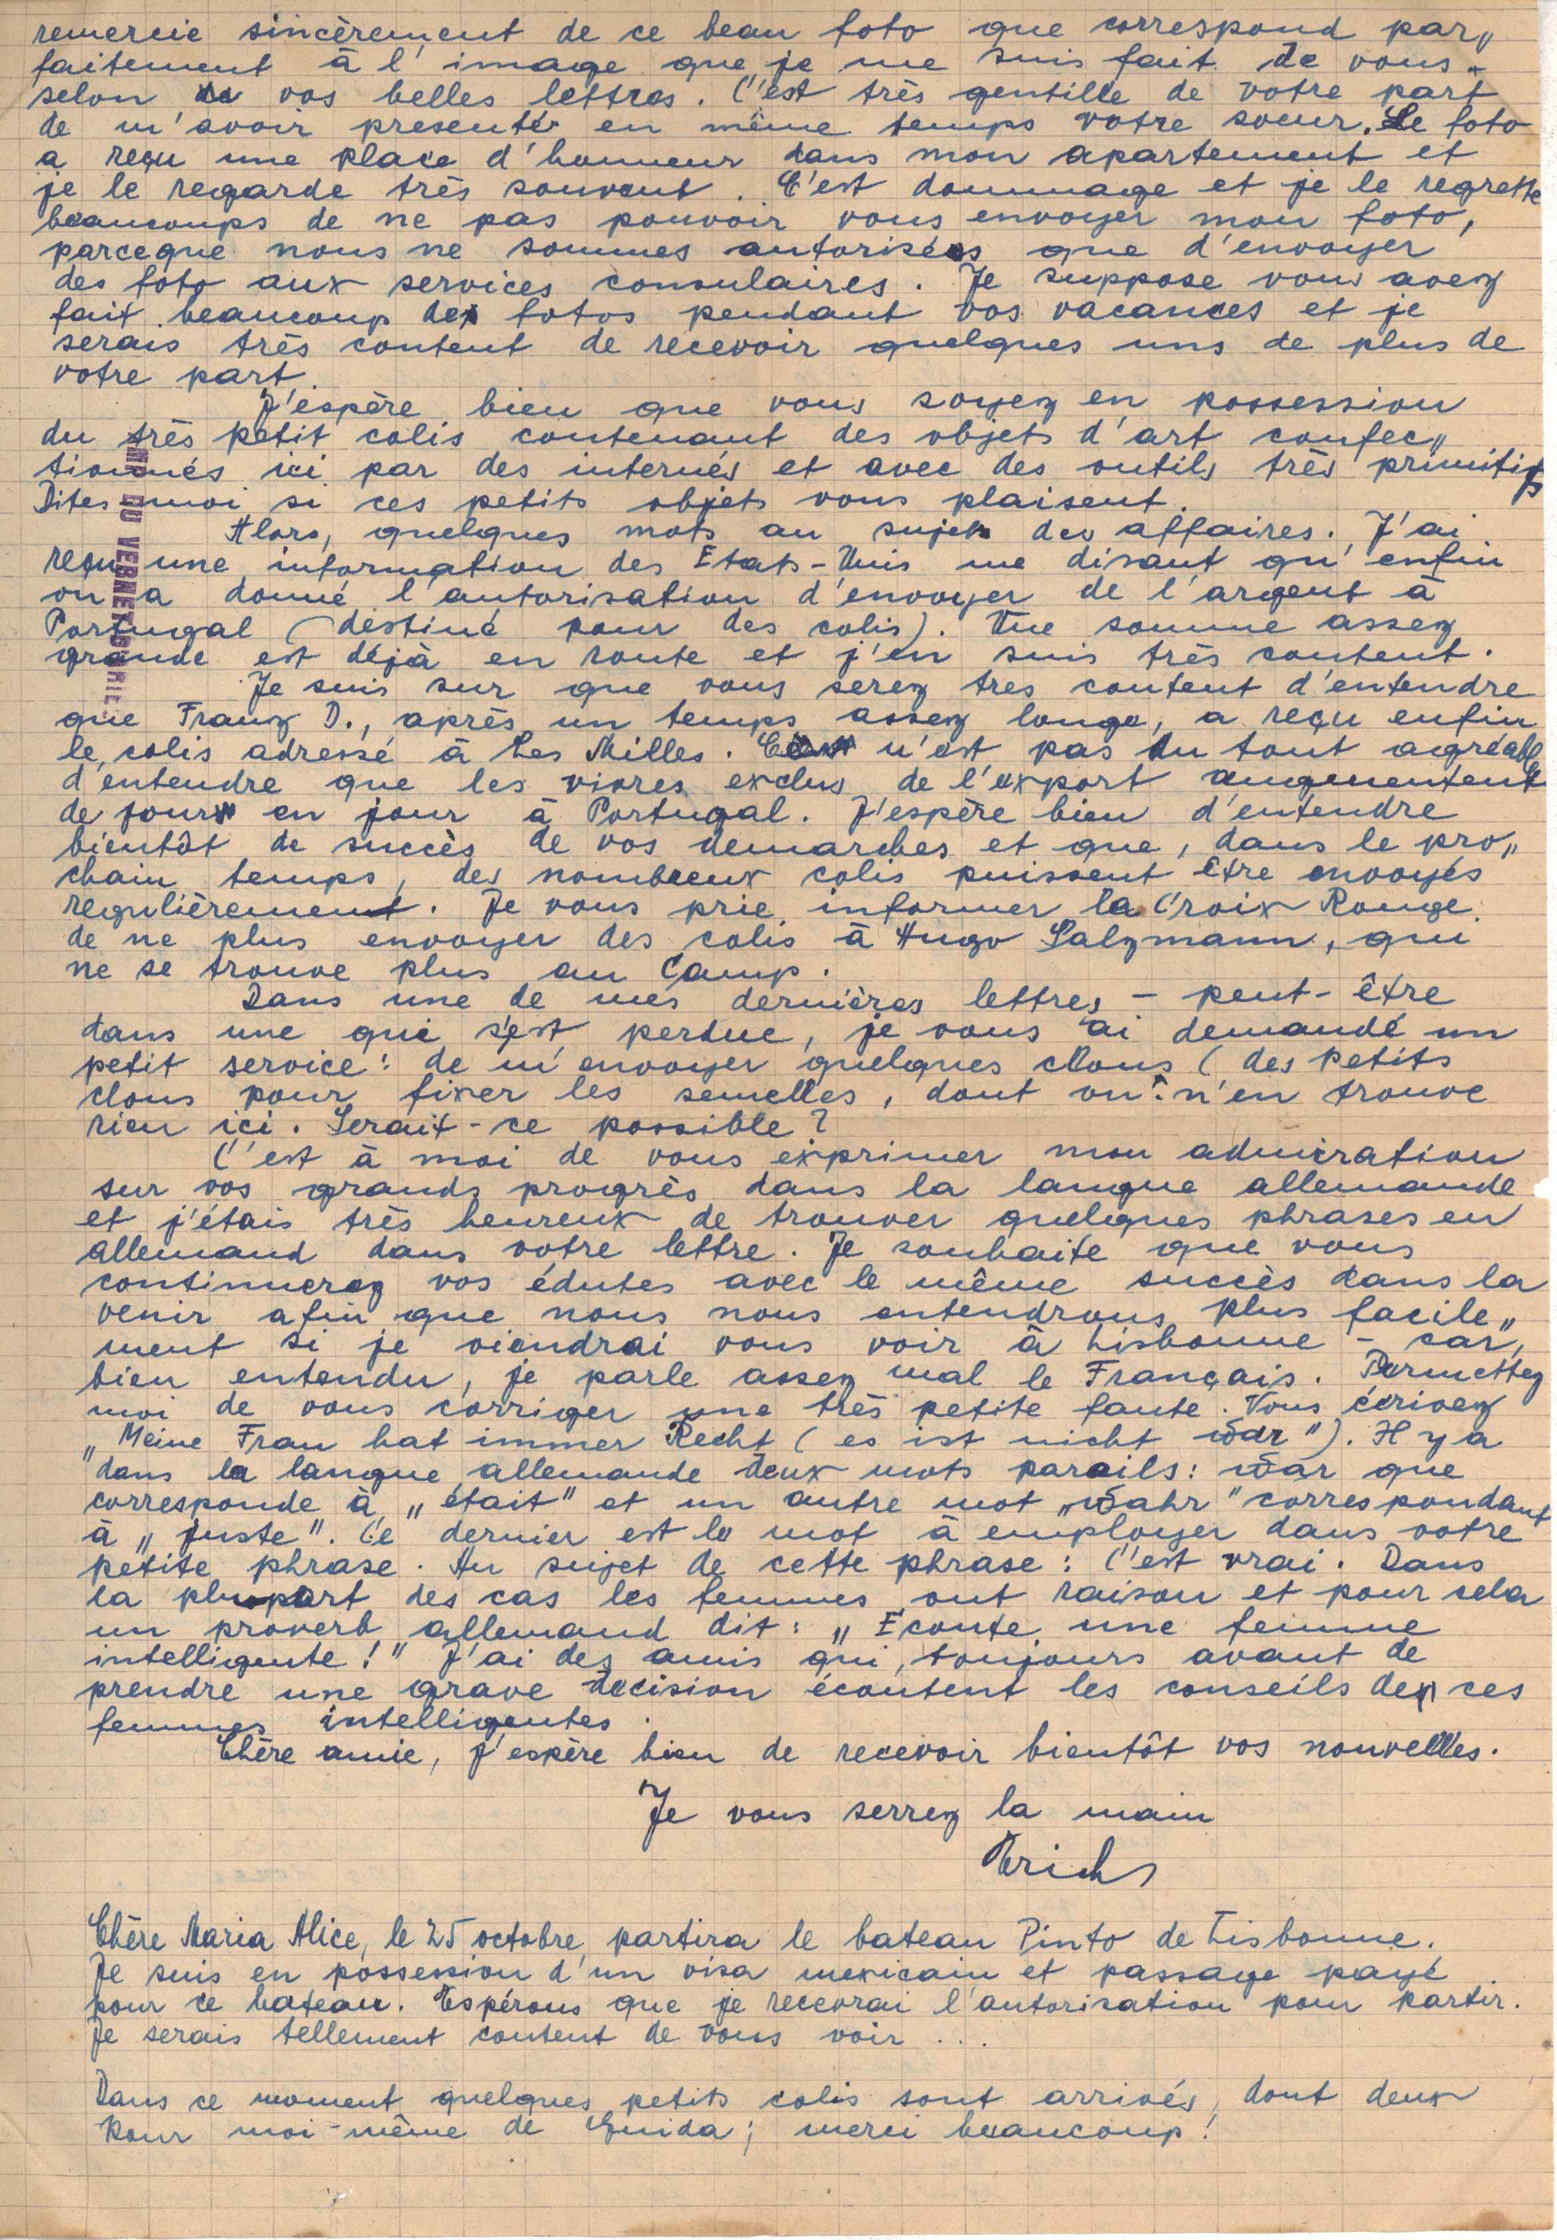 remercie sincèrement de ce beau foto que correspond par„
faitement à l'image que je me suis fait de vous
selon vos belles lettres. C'est très gentille de votre part
de m'avoir presenter en même temps votre soeur. Le foto
a reçu une place d'honneur dans mon apartement et
je le regarde très souvent. C'est dommage et je le regrette
beaucoups de ne pas pouvoir vous envoyer mon foto,
parceque nous ne sommes autorisées que d'envoyer
des foto aux services consulaires. Je suppose vous avez
fait beaucoup des fotos pendant vos vacances et je
serais très content de recevoir quelques uns de plus de
votre part.
J'espère bien que vous soyez en possession
du très petit colis contenant des objets d'art confec„
tionnés ici par des internés et avec des outils très primitifs
Dites moi si ces petits objets vous plaisent.
Alors, quelques mots au sujet des affaires. J'ai
reçu une information des Etats-Unis me disant qu'enfin
on a donné l'autorisation d'envoyer de l'argent à
Portugal (destiné pour des colis). Une somme assez
grande est déjà en route et j'en suis très content.
Je suis sur que vous serez tres content d'entendre
que Franz D., après un temps assez longe, a reçu enfin
le colis adressé à Les Milles. n'est pas du tout agréable
d'entendre que les vivres exclus de l'export augmentent
de jour en jour à Portugal. J'espère bien d'entendre
bientôt de succès de vos demarches et que, dans le pro„
chain temps, des nombreux colis puissent être envoyés
regulièrement. Je vous prie informer la Croix Rouge
de ne plus envoyer des colis à Hugo Salzmann, qui
ne se trouve plus au Camp.
Dans une de mes dernières lettres - peut-être
dans une qui s'est perdue, je vous ai demandé un
petit service: de m'envoyer quelques clous (des petits
clous pour fixer les semelles, dont on n'en trouve
rien ici. Serait-ce possible?
C'est à moi de vous exprimer mon admiration
sur vos grands progrès dans la langue allemande
et j'étais très heureux de trouver quelques phrases en
allemand dans votre lettre. Je souhaite que vous
continuerez vos édutes avec le même succès dans la
venir afin que nous nous entendrons plus facile„
ment si je viendrai vous voir à Lisbonne - car,
bien entendu, je parle assez mal le Français. Permettez
moi de vous corriger une très petite faute. Vous écrivez
„Meine Frau hat immer Recht (es ist nicht war"). Il y a
dans la langue allemande deux mots pareils: war que
corresponde à „était" et un autre mot „wahr" correspondant
à „juste". Ce dernier est le mot à employer dans votre
petite phrase. Au sujet de cette phrase: C'est vrai. Dans
la plupart des cas les femmes ont raison et pour cela
un proverb allemand dit: „Ecoute une femme
intelligente!" J'ai des amis qui, toujours avant de
prendre une grave decision écoutent les conseils de ces
femmes intelligentes.
Chère amie, j'espère bien de recevoir bientôt vos nouvelles.
Je vous serrez la main
Erich
Chère Maria Alice, le 25 octobre partira le bateau Pinto de Lisbonne.
Je suis en possession d'un visa mexicain et passage payé
pour ce bateau. Espérons que je recevrai l'autorisation pour partir.
Je serais tellement content de vous voir ...
Dans ce moment quelques petits colis sont arrivés, dont deux
pour moi-même de Guida; merci beaucoup!
DU VERNET